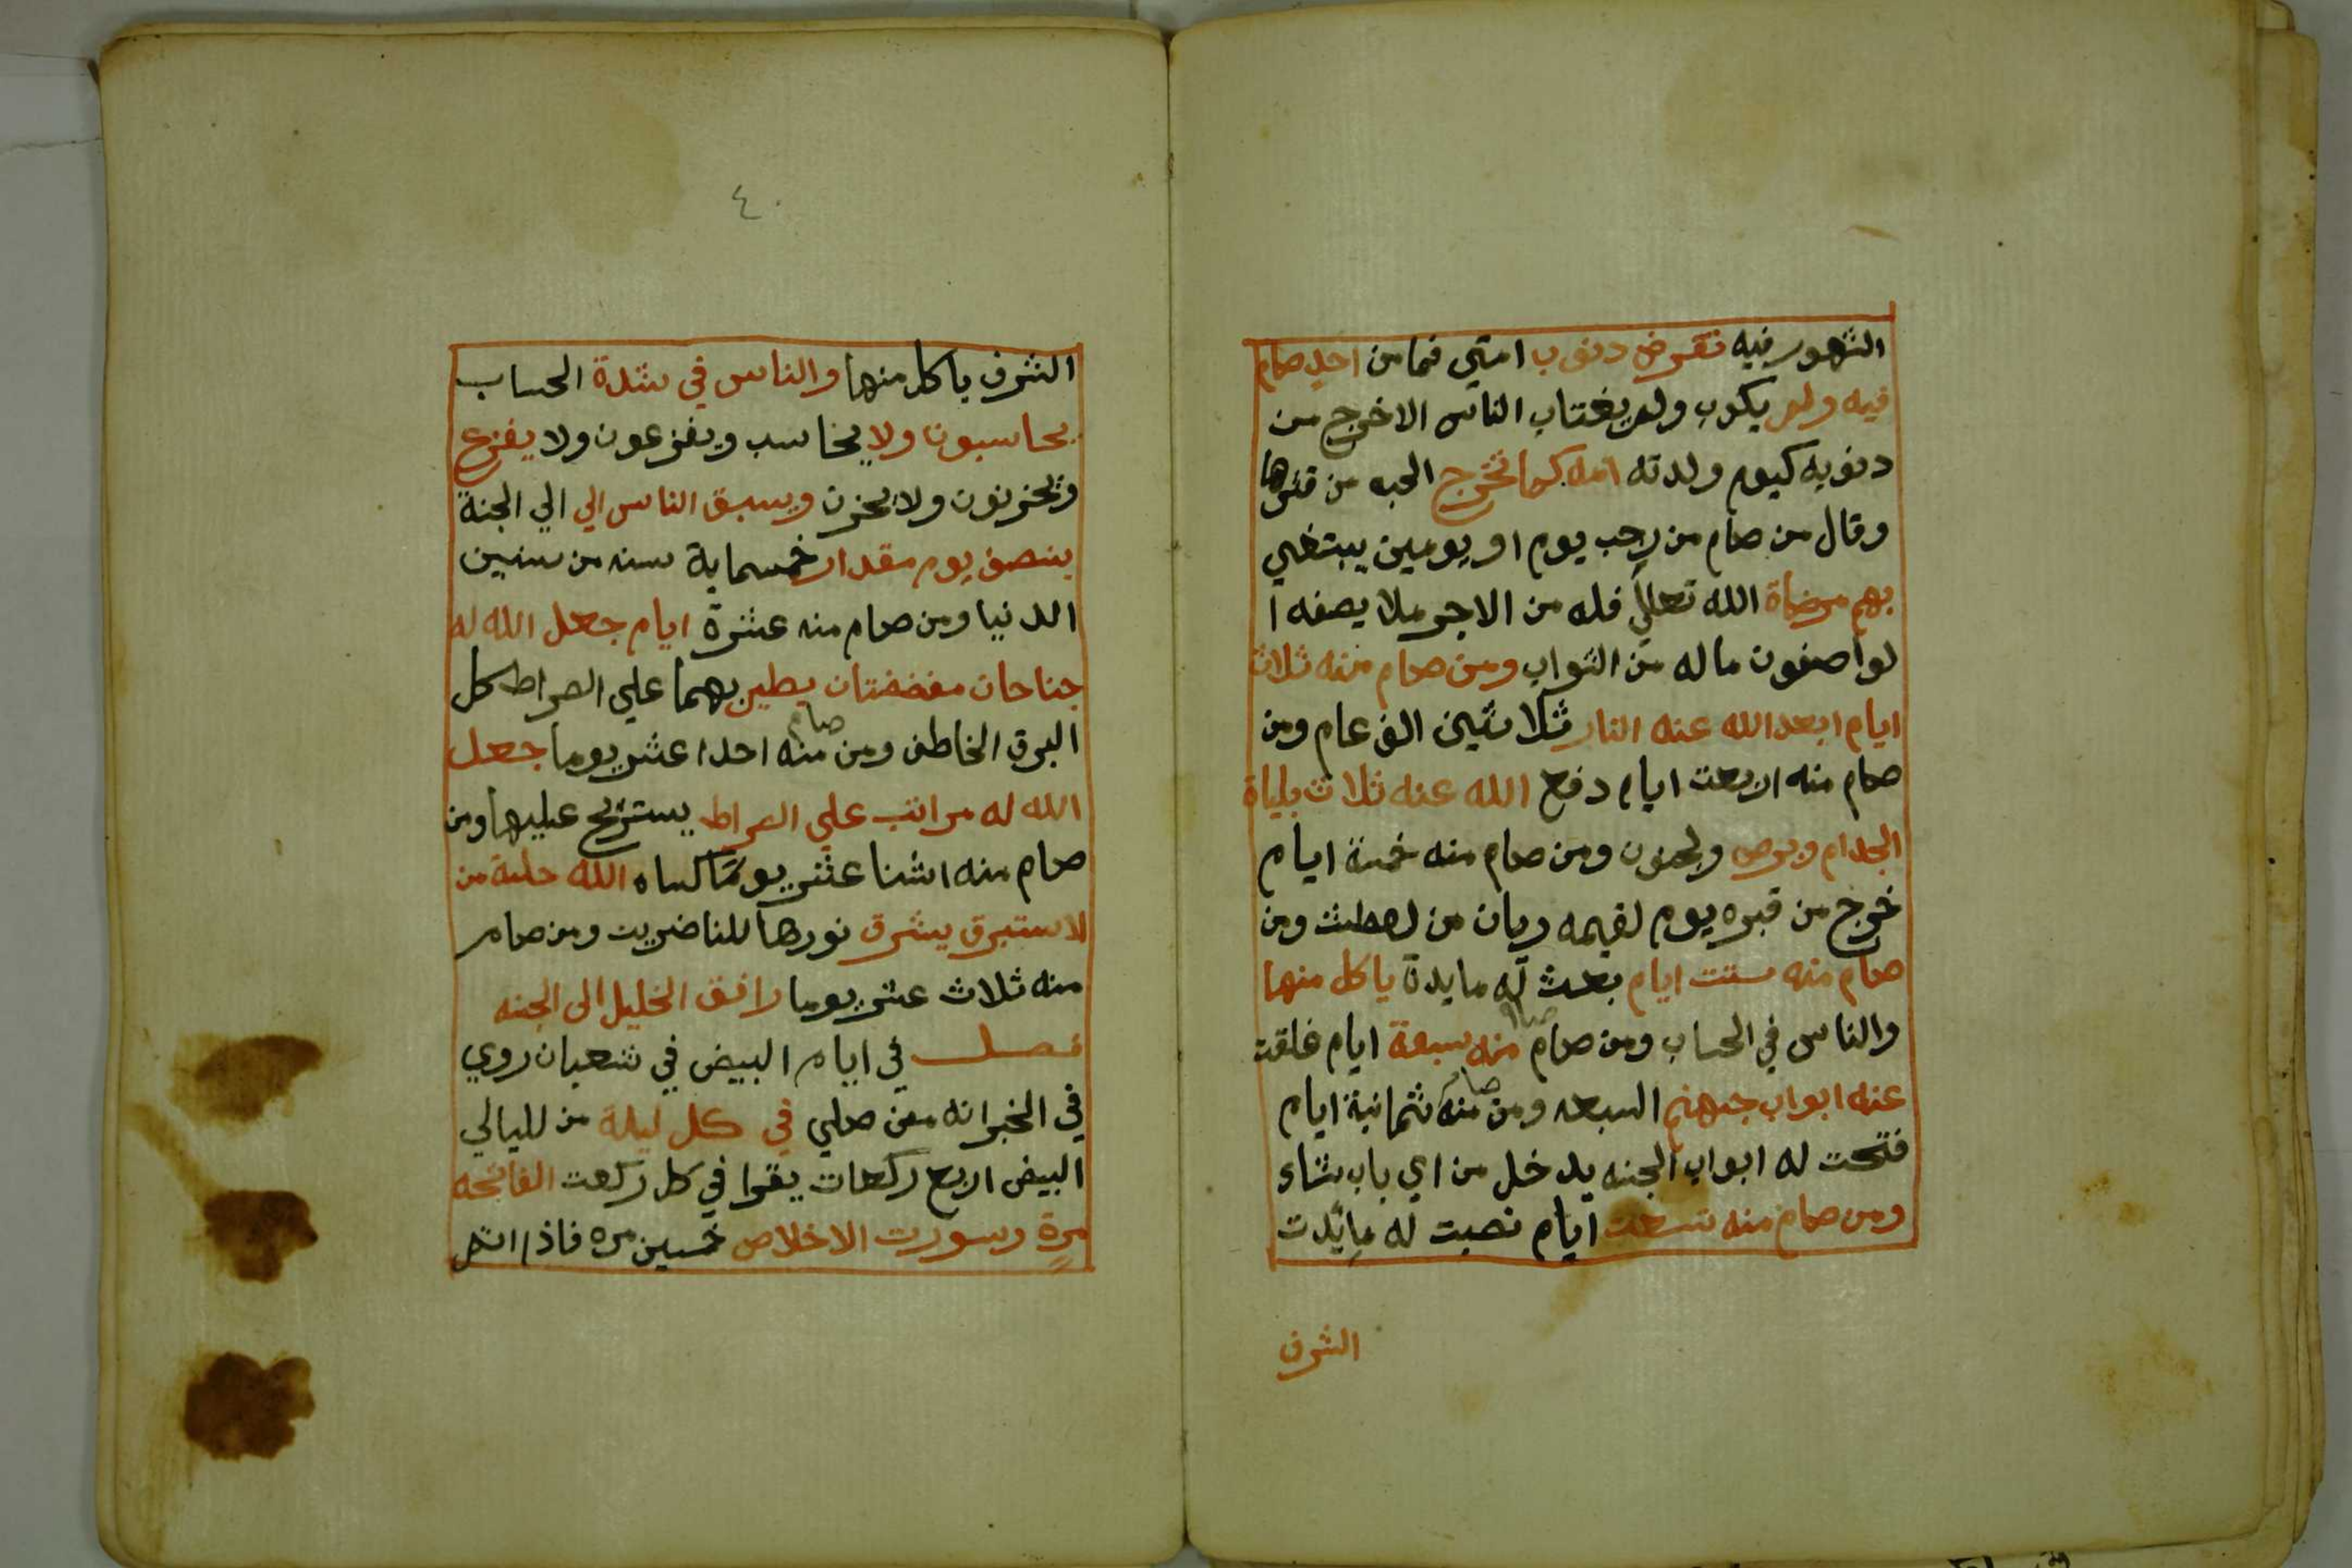 الشهور فيه تقرض دنوب امتي فما من احد صام
فيه ولو يكوب ولو يغتاب الناس الا خرج من
دنوبه كيوم ولدته امه كما تخرج الحبه من قشرها
وقال من صام من رجب يوم او يومين يبتغي
بهم مرضاة الله تعالي فله من الاجر ملا يصفه ا
لواصفون ماله من الثواب ومن صام منه ثلاث
ايام ابعد الله عنه النار ثلاثين الف عام ومن
صام منه اربعت ايام دفع الله عنه ثلاث بلياة
الجدام وبرص ولجنون ومن صام منه خمسة ايام
خرج من قبره يوم لقيمه ريان من لعطش ومن
صام منه ستت ايام بعث له مايدة ياكل منها
والناس في الحساب ومن صام منه سبعة ايام غلقت
عنه ابواب جهنم السبعه ومن صام منه ثمانية ايام
فتحت له ابواب الجنه يدخل من اي باب شاء
ومن صام منه تسعت ايام نصبت له مائدت
الشرف
٤٠
الشرف ياكل منها والناس في شدة الحساب
يحاسبون ولا يحاسب ويفزعون ولا يفزع
ويحزنون ولا يحزن ويسبق الناس الي الي الجنة
بنصف يوم مقدار خمسماية سنه من سنين
الدنيا ومن صام منه عشرة ايام جعل الله له
جناحان مفضضتان يطير بهما علي الصراط كل
البرق الخاطف ومن صام منه احدا عشر يوما جعل
الله له مراتب علي الصراط يستريح عليها ومن
صام منه اشنا عشر يوما كساه الله حلة من
لاستبرق يشرق نورها للناضريت ومن صام
منه ثلاث عشر يوما رافق الخليل الى الجنه
فصل في ايام البيض في شعبان روي
في الخبر انه من صلي في كل ليلة من لليالي
البيض اربع ركعات يقرا في كل ركعت الفاتحه
مرة وسورت الاخلاص خمسين مره فاذا